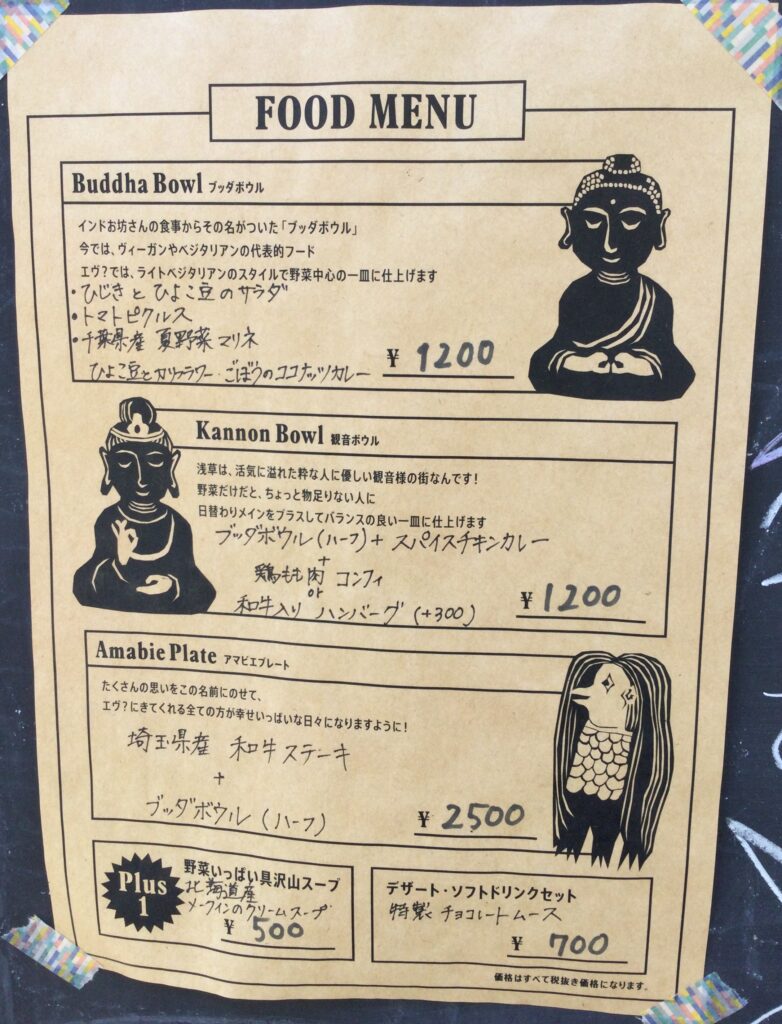 FOOD MENU
Buddha Bowl ブッダボウル
インドお坊さんの食事からその名がついた「ブッダボウル」
今では、ヴィーガンやベジタリアンの代表的フード
エヴ?では、ライトベジタリアンのスタイルで野菜中心の一皿に仕上げます
・ひじきと ひよこ豆のサラダ
・トマトピクルス
・千葉県産 夏野菜マリネ
ひよこ豆とカリフラワー・ごぼうのココナッツカレー
¥ 1200
Kannon Bowl 観音ボウル
浅草は、活気に溢れた粋な人に優しい観音様の街なんです!
野菜だけだと、ちょっと物足りない人に
日替わりメインをプラスしてバランスの良い一皿に仕上げます
ブッダボウル(ハーフ)+ スパイスチキンカレー
+
鶏もも肉 コンフィ
or
和牛入り ハンバーグ (+300)
¥ 1200
Amabie Plate アマビエプレート
たくさんの思いをこの名前にのせて、
エヴ?にきてくれる全ての方が幸せいっぱいな日々になりますように!
埼玉県産 和牛ステーキ
+
ブッダボウル (ハーフ)
¥ 2500
Plus
1
野菜いっぱい具沢山スープ
北海道産
メークインのクリームスープ
¥ 500
デザート・ソフトドリンクセット
特製 チョコレートムース
¥ 700
価格はすべて税抜き価格になります。